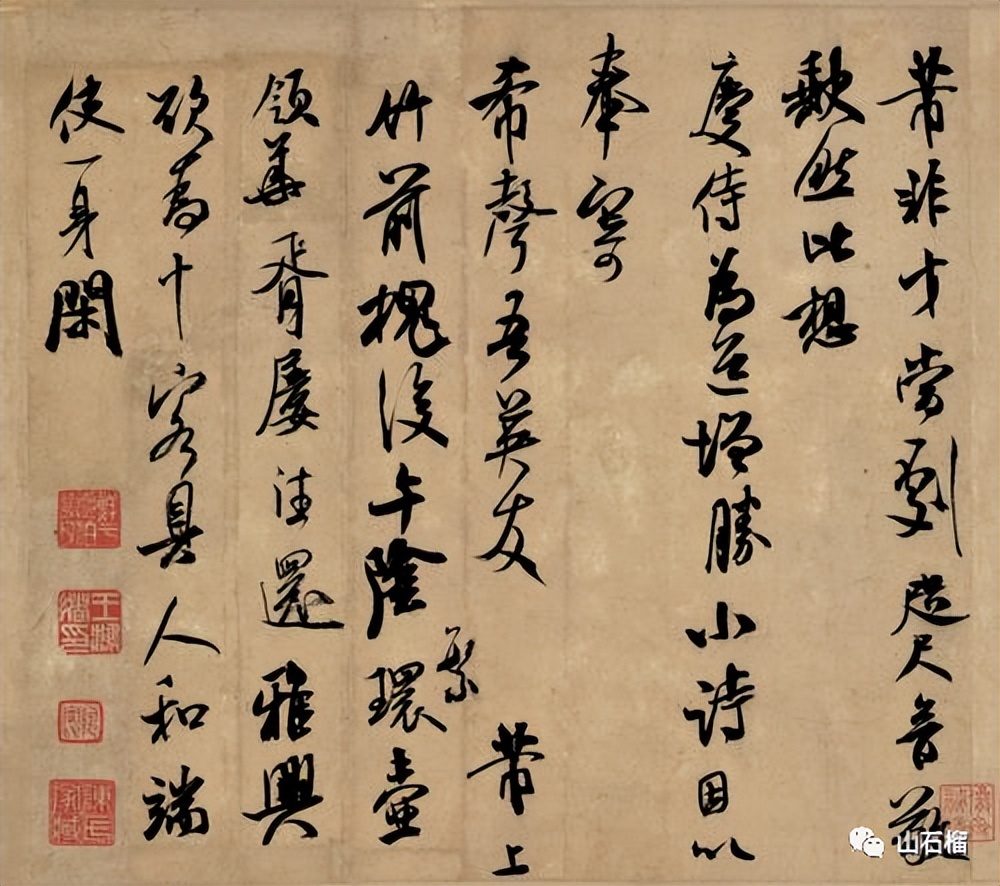 芾非才當劇咫尺音敬
缺然比想
慶侍為道增勝小詩因以
奉寄
希聲吾英友 芾上
竹前槐後午陰繁環壺
領華胥屢往還雅興
欲為十客具人和端
使一身閑
山石榴